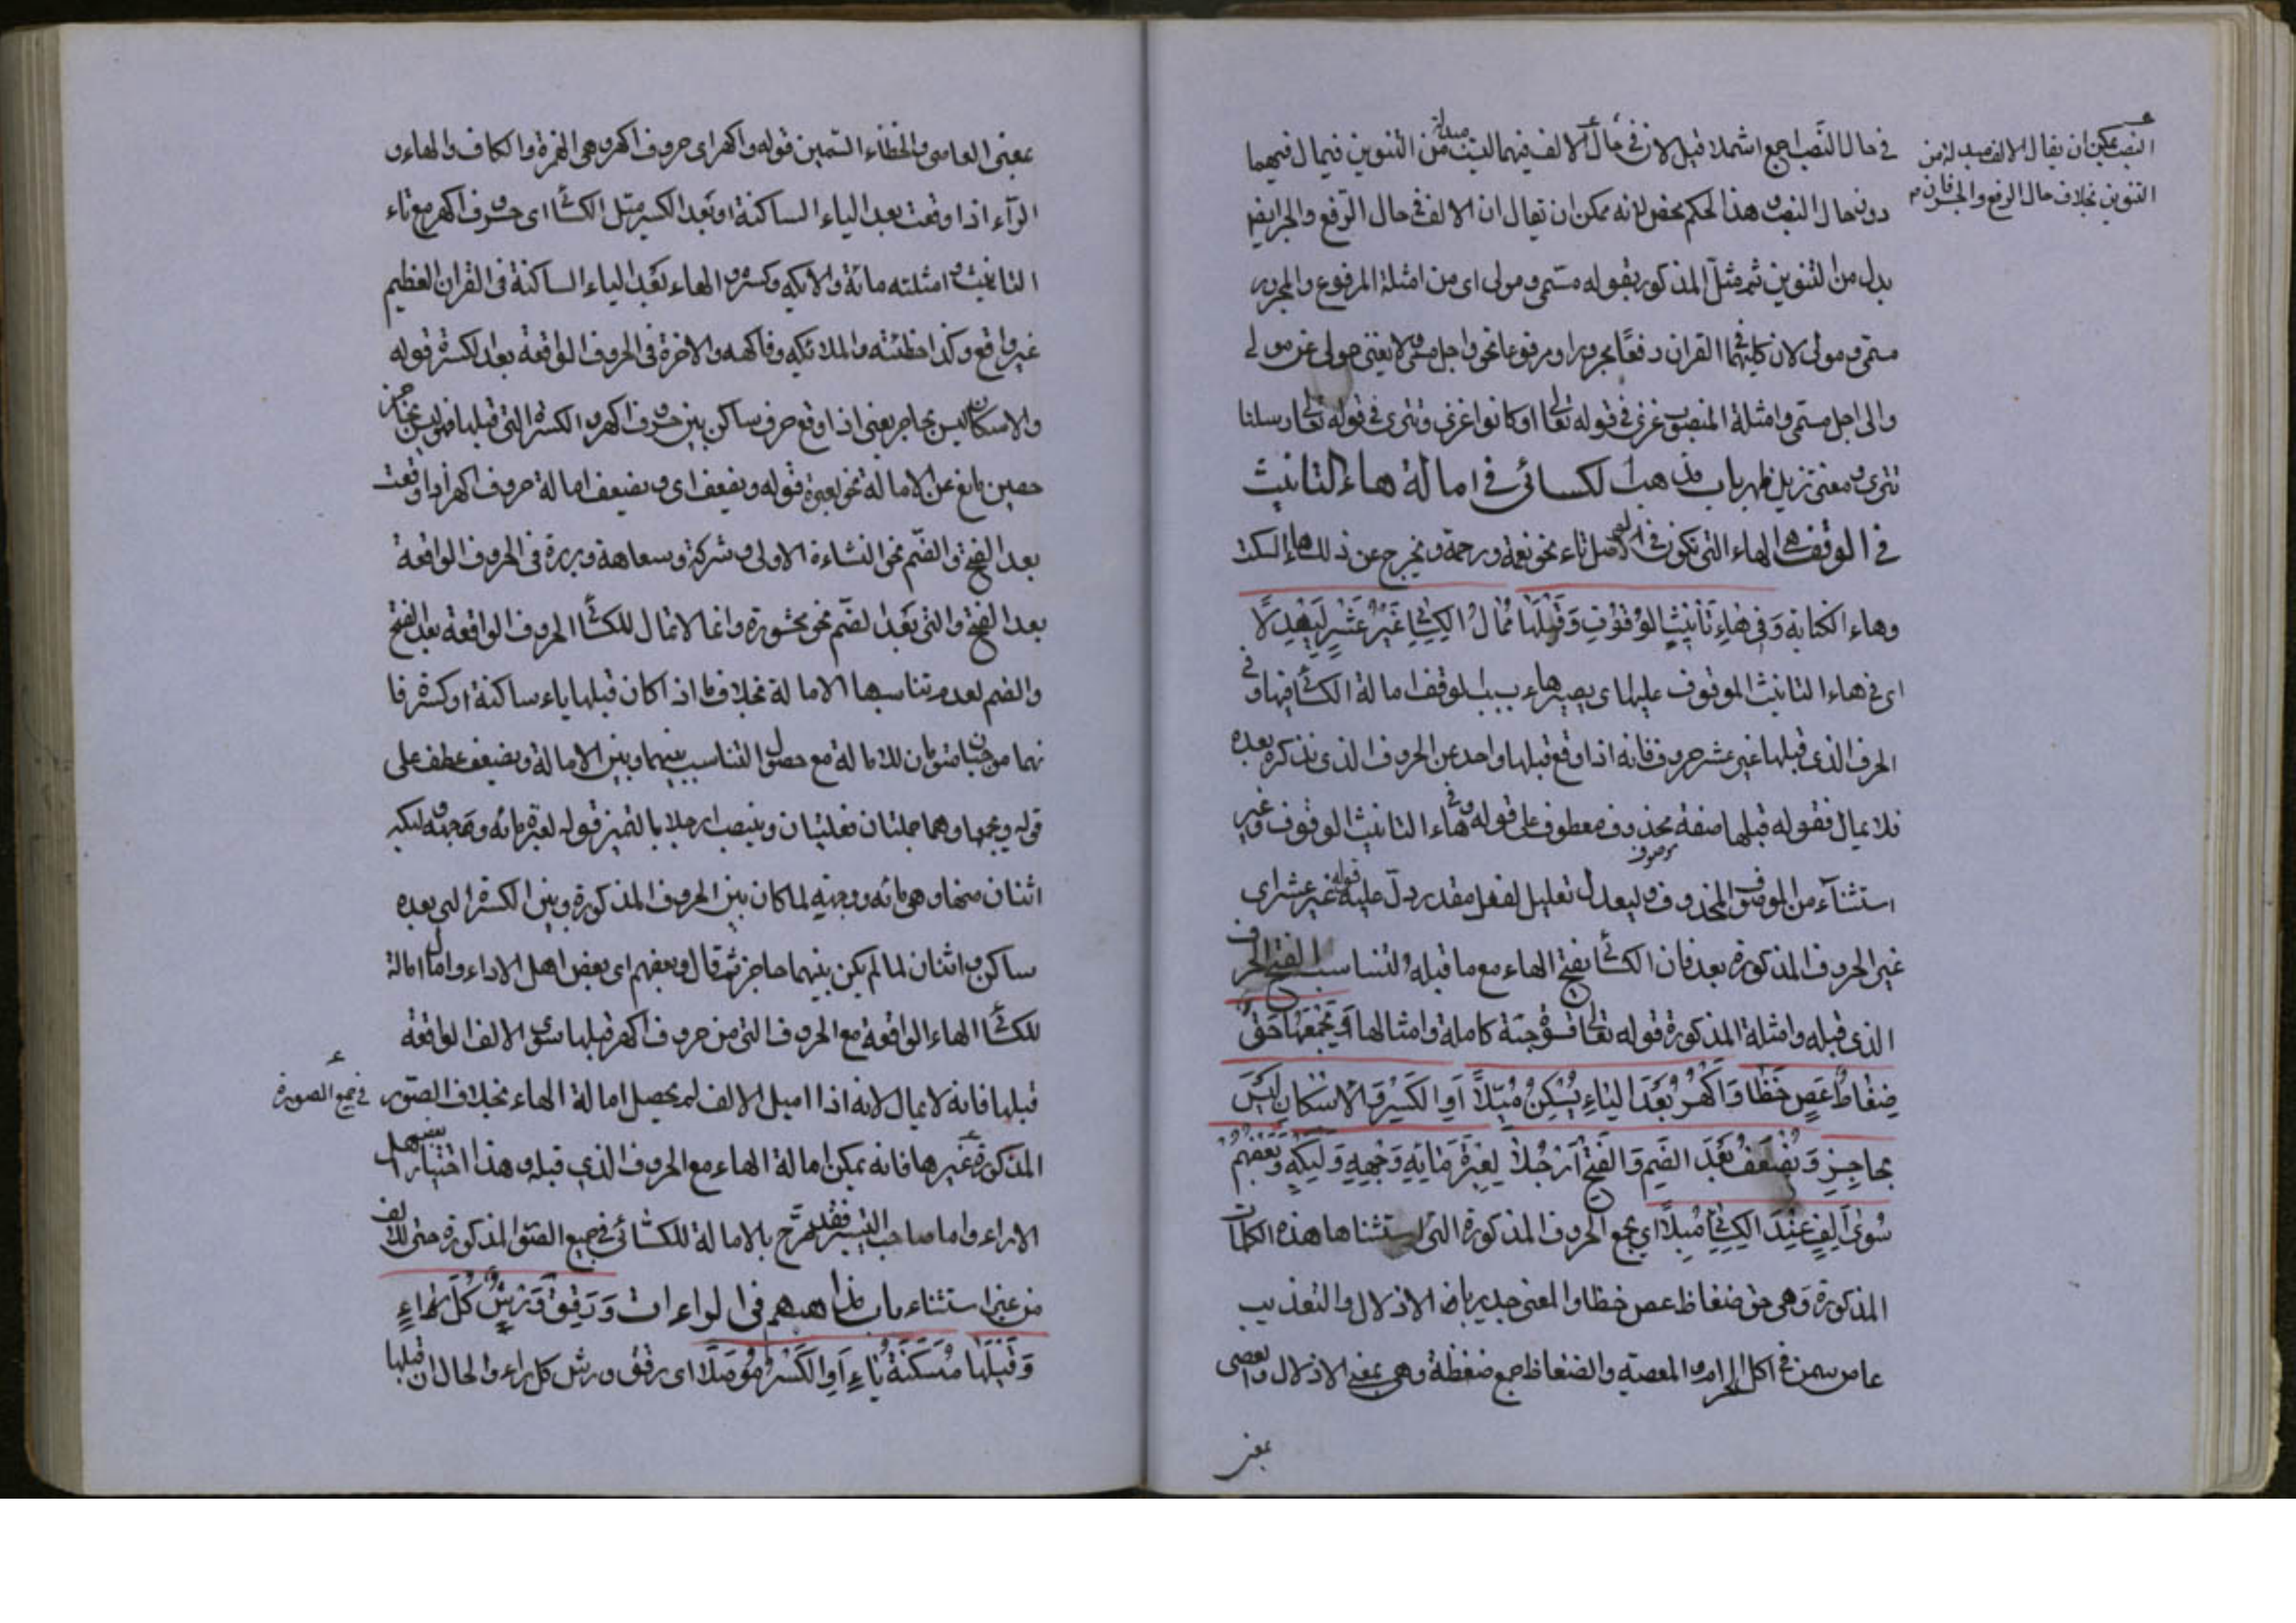 في حال النصب اجمع اشملا قيل لان في حال الالف فيهما ليست مبدلة من التنوين فيمال فيهما
النصب يمكن ان يقال الالف مبدلة من
التنوين بخلاف حال الرفع والجر فان
دون حال النصب وهذا الحكم محض لانه ممكن ان يقال ان الالف في حال الرفع والجر ايضا
بدل من التنوين ثم مثل المذكور بقوله مسمى ومولى اى من امثلة المرفوع والمجرور
مسمى ومولى لان كليهما في القران وقعا مجرورا ومرفوعا نحو واجل مسمى ولا يغنى مولى عن مولى
والى اجل مسمى وامثلة المنصوب غزى في قوله تعالى او كانوا غزى وتترى في قوله تعالى ارسلنا
تترى ومعنى تزيل ظهر باب مذهب الكسائى فى امالة هاء التانيث
فى الوقف هى الهاء التى تكون فى الوصل تاء نحو نعمة ورحمة ويخرج عن ذلك هاء السكت
وهاء الكناية وَفِى هَاءِ تَأنِيثِ الوُقُوفِ وَقَبْلَهَا مُمَالُ الكِسَائِى غَيْرَ عَشْرٍ لِيَعْدِلَا
اى فى هاء التانيث الموقوف عليها اى يصير هاء بسبب الوقف امالة الكسائى فيها وفى
الحرف الذى قبلها غير عشر حروف فانه اذا وقع قبلها واحد من الحروف الذى نذكره بعده
فلا يمال فقوله قبلها صفة محذوف معطوف على قوله وفى هاء التانيث الوقوف وغير
استثناء من الموصوف المحذوف وليعدل تعليل لفعل مقدر دل عليه قوله غير عشر اى
غير الحروف المذكورة بعد فان الكسائى يفتح الهاء مع ما قبله لتناسب الفتح الحرف
الذى قبله وامثلة المذكورة قوله تعالى قسوة جنة كاملة وامثالها وَيَجْمَعُهَا حَقٌّ
ضِغَاطُ عَصٍ خَظَا وَأَكْهَرُ بَعْدَ اليَاءِ يَسْكُنُ مُيِّلَا أَوِ الكَسْرِ وَالاِسْكَانُ لَيْسَ
بِحَاجِزٍ وَيَضْعُفُ بَعْدَ الضَّمِ وَالفَتْحِ أَرْجُلَا لَعِبْرَة مِائَة وِجْهَة وَلَيْكَة وَبَعْضُهُمْ
سُوَى أَلِفٍ عِنْدَ الكِسَائِى مَيَّلَا اى يجمع الحروف المذكورة التى استثناها هذه الكلمات
المذكورة وهى حق ضغاط عص خظا والمعنى جدير باض الاذلال والتعذيب
عاص سمن فى اكل الحرام والمعصية والضغاط جمع ضغطة وهى بمعنى الاذلال والعصى
بمعنى
بمعنى العاصى والخظاء السمين قوله واكهر اى حروف اكهر وهى الهمزة والكاف والهاء و
الراء اذا وقعت بعد الياء الساكنة او بعد الكسر ميّل الكسائى اى حروف اكهر مع تاء
التانيث وامثلته مائة والايكه وكثيره والهاء بعد الياء الساكنة فى القران العظيم
غير واقع وكذا خطئته والملائكه وفاكهه والاخرة فى الحروف الواقعة بعد الكسرة قوله
والاسكان ليس بحاجز يعنى اذا وقع حرف ساكن بين حروف اكهر والكسرة التى قبلها فهو ليس بحاجز
حصين مانع عن الامالة نحو لعبرة قوله ويضعف اى ويضعف امالة حروف اكهر اذا وقعت
بعد الفتح والضم نحو النشاءة الاولى وشركة وسعاهة وبررة فى الحروف الواقعة
بعد الفتح والتى بعد الضم نحو محشورة وانما لا تمال للكسائى الحروف الواقعة بعد الفتح
والضم لعدم تناسبها الامالة بخلاف ما اذا كان قبلها ياء ساكنة او كسرة فا
نهما موجبان للامالة مع حصول التناسب بينهما وبين الامالة ويضعف عطف على
قوله ويجمعها وهما جملتان فعليتان وينصب ارجلا بالتميز قوله لعبرة مائه ووجهه وليكه
اثنان منها وهى مائه ووجهه لما كان بين الحروف المذكورة وبين الكسرة التى بعده
ساكن واثنان لما لم يكن بينهما حاجز ثم قال وبعضهم اى بعض اهل الاداء وامال امالة
للكسائى الهاء الواقعة مع الحروف التى من حروف اكهر قبلها سوى الالف الواقعة
قبلها فانه لا يمال لانه اذا اميل الالف لم يحصل امالة الهاء بخلاف الصور
فى جميع الصورة
المذكورة غيرها فانه يمكن امالة الهاء مع الحروف الذى قبله وهذا اختيار بعض اهل
الاداء واما صاحب التيسير فقد صرح بالامالة للكسائى فى جميع الصور المذكورة حتى الالف
من غير استثناء باب مذاهبهم فى الراءات وَرَقَّقَ وَرْشٌ كُلَّ رَاءٍ
وَقَبْلَهَا مُسَكَّنَةً يَاءٌ أَوِ الكَسْرُ مُوصَلَا اى رقق ورش كل راء والحال ان قبلها